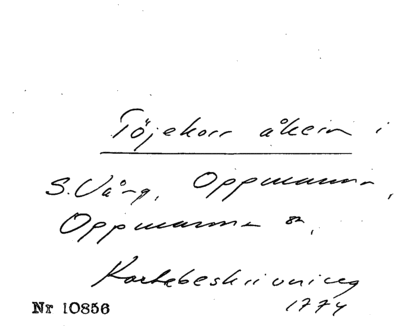 Töjekorr åkern i
S. Vång, Oppmanna,
Oppmanna sn,
Kartebeskrivning
Nr 10856 1774